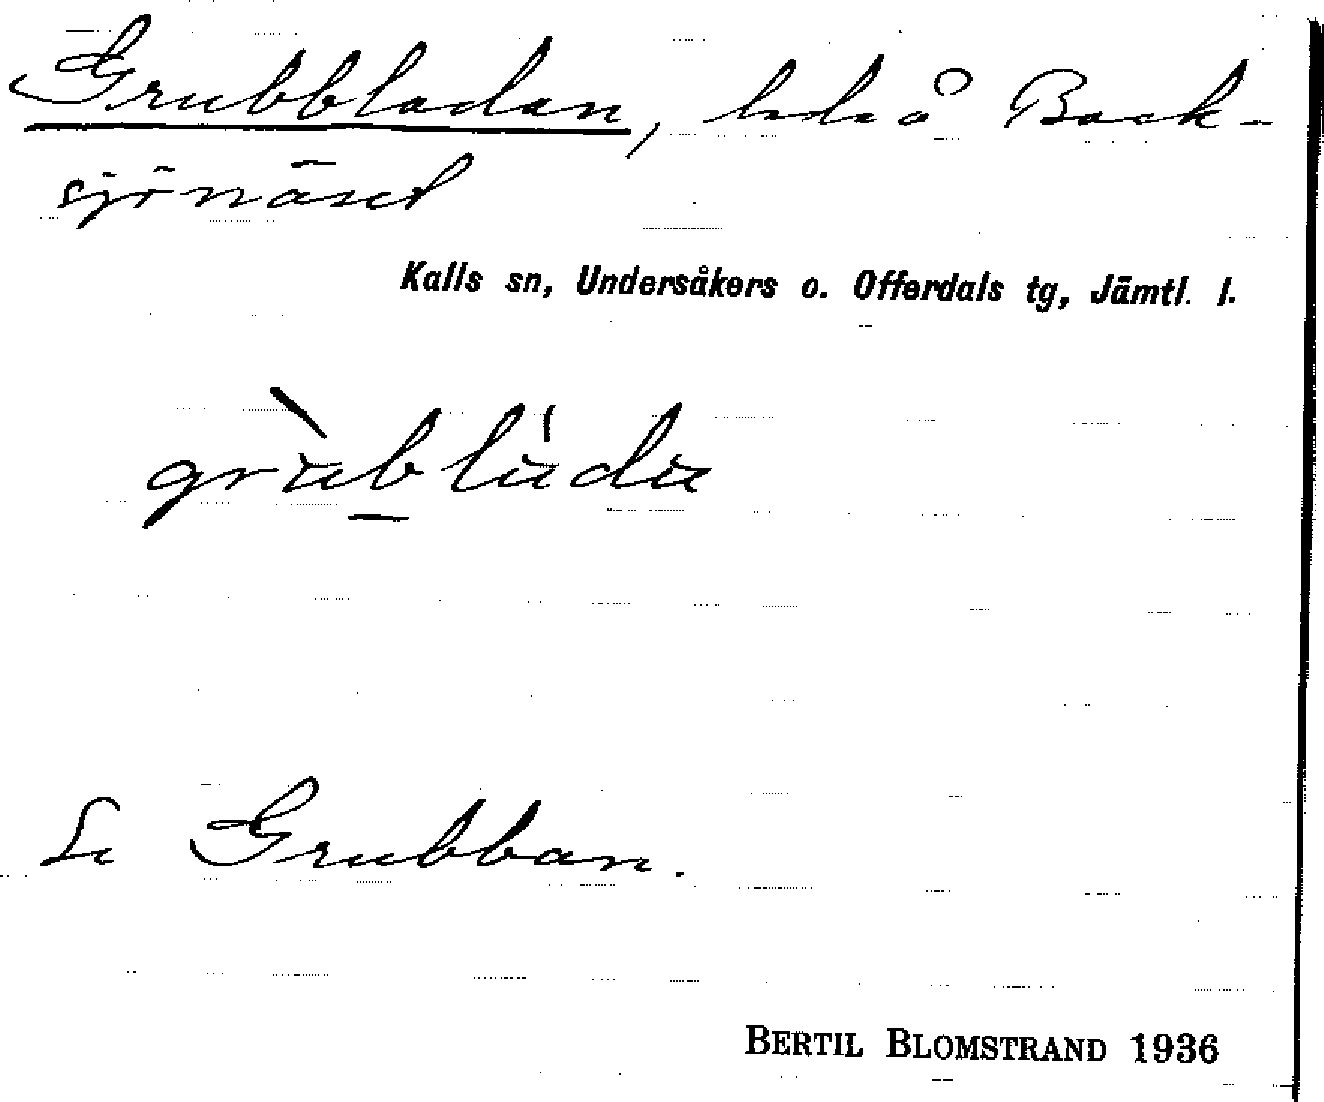 Grubbladan, lada å Back-
sjönäset
Kalls sn, Undersåkers o. Offerdals tg, Jämtl. l.
Se Grubban.
BERTIL BLOMSTRAND 1936